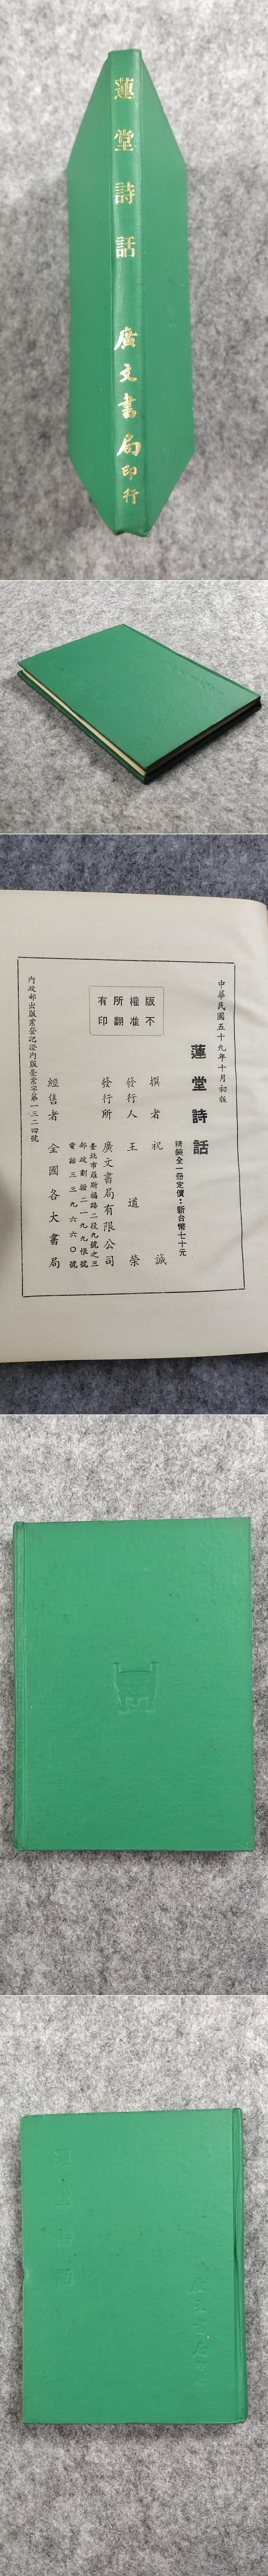 蓮堂詩話
廣文書局印行
中華民國五十九年十月初版
蓮堂詩話
精裝全一冊定價：新台幣七十元
撰者 祝誠
發行人 王道榮
發行所 廣文書局有限公司
臺北市羅斯福路二段九號之三
郵政劃撥二一九九帳號
電話三三九六六〇號
經售者 全國各大書局
版權所有
不准翻印
內政部出版業登記證內版臺業字第一三二四號